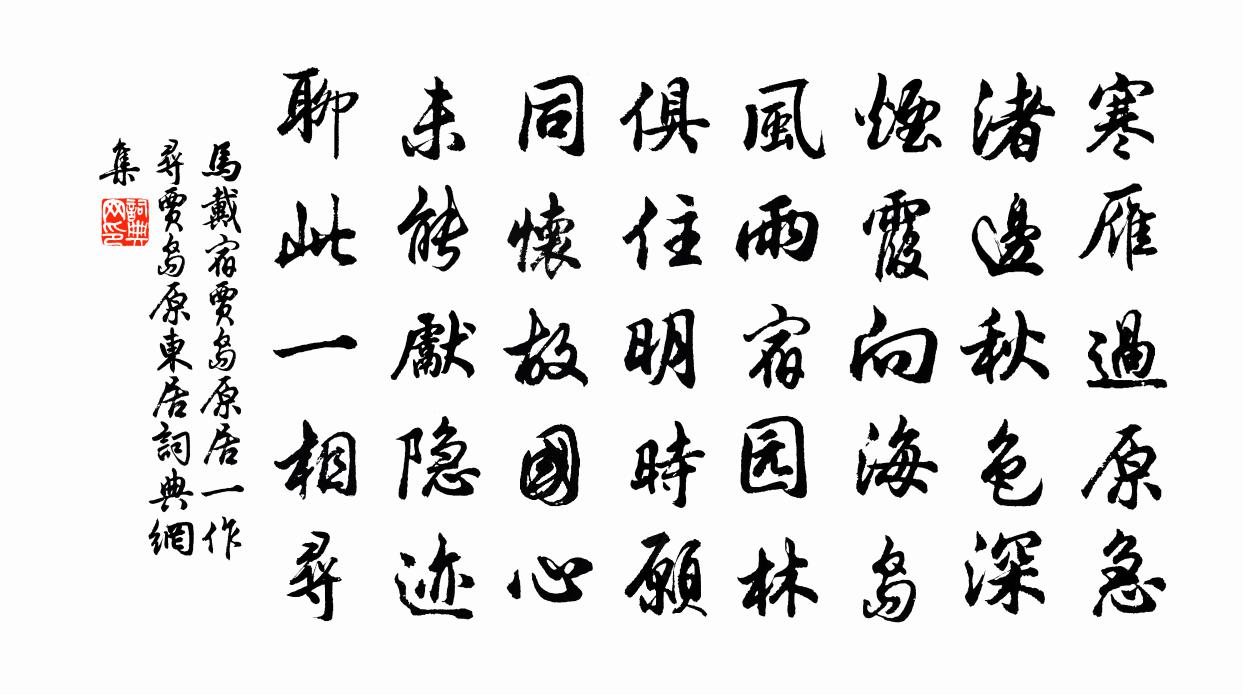 寒雁過原急
渚邊秋色深
煙霞向海島
風雨宿园林
俱住明時願
同懷故國心
未能獻隐迹
聊此一相尋
馬戴宿賈島原居一作
尋賈島原東居詞典網
集
詞典
网印